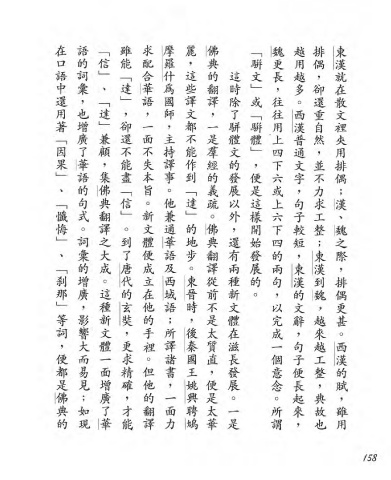 東漢就在散文裡夾用排偶;漢、魏之際,排偶更甚。西漢的賦,雖用
排偶,卻還重自然,並不力求工整;東漢到魏,越來越工整,典故也
越用越多。西漢普通文字,句子較短,東漢的文辭,句子便長起來,
魏更長,往往用上四下六或上六下四的兩句,以完成一個意念。所謂
「駢文」或「駢體」,便是這樣開始發展的。
這時除了駢體文的發展以外,還有兩種新文體在滋長發展。一是
佛典的翻譯,一是羣經的義疏。佛典翻譯從前不是太質直,便是太華
麗,這些譯文都不能作到「達」的地步。東晉時,後秦國王姚興聘鳩
摩羅什為國師,主持譯事。他兼通華語及西域語;所譯諸書,一面力
求配合華語,一面不失本旨。新文體便成立在他的手裡。但他的翻譯
雖能「達」,卻還不能盡「信」。到了唐代的玄奘,更求精確,才能
「信」、「達」兼顧,集佛典翻譯之大成。這種新文體一面增廣了華
語的詞彙,也增廣了華語的句式。詞彙的增廣,影響大而易見;如現
在口語中還用著「因果」、「懺悔」、「剎那」等詞,便都是佛典的
158